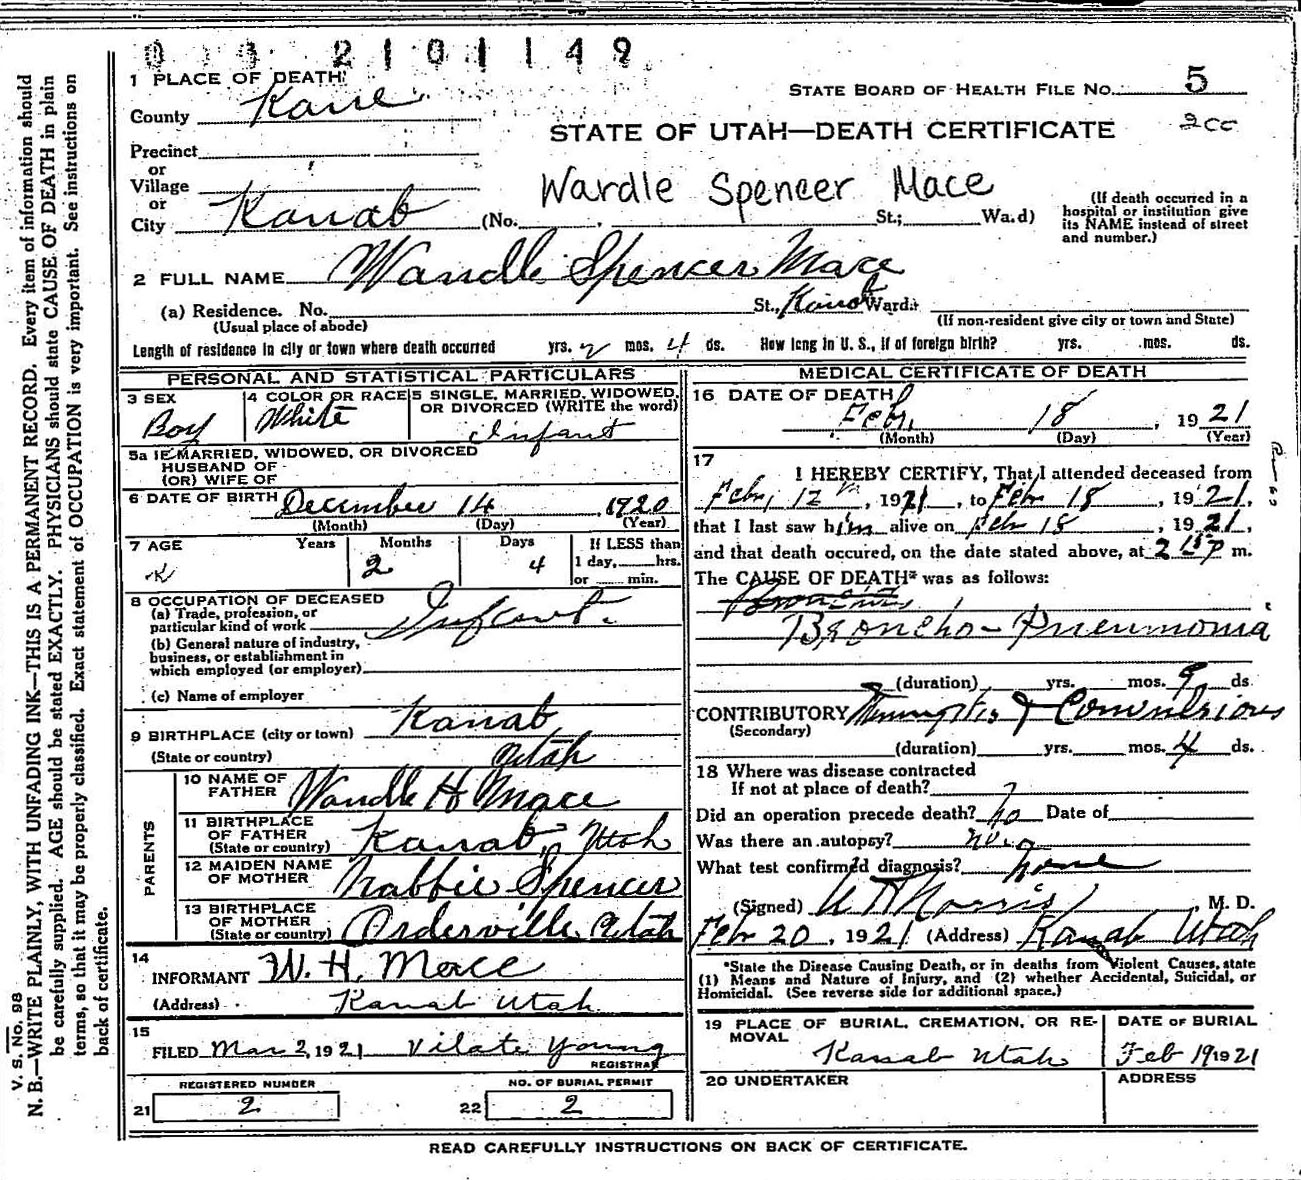 2101149
1 PLACE OF DEATH
County Kane
STATE BOARD OF HEALTH FILE NO. 5
STATE OF UTAH—DEATH CERTIFICATE
Precinct
or
Village
or
City Kanab (No. St.; Wa.d)
Wardle Spencer Mace
(If death occurred in a
hospital or institution give
its NAME instead of street
and number.)
2 FULL NAME Wardle Spencer Mace
(a) Residence. No. St., Kanab Ward.
(Usual place of abode)
(If non-resident give city or town and State)
Length of residence in city or town where death occurred yrs. 2 mos. 4 ds. How long in U. S., if of foreign birth? yrs. mos. ds.
PERSONAL AND STATISTICAL PARTICULARS
3 SEX
Boy
4 COLOR OR RACE
White
5 SINGLE, MARRIED, WIDOWED,
OR DIVORCED (WRITE the word)
Infant
5a IF MARRIED, WIDOWED, OR DIVORCED
HUSBAND OF
(OR) WIFE OF
6 DATE OF BIRTH December 14, 1920
(Month) (Day) (Year)
7 AGE Years Months Days If LESS than
1 day, hrs.
2 4
or min.
8 OCCUPATION OF DECEASED
(a) Trade, profession, or
particular kind of work Infant.
(b) General nature of industry,
business, or establishment in
which employed (or employer)
(c) Name of employer
9 BIRTHPLACE (city or town) Kanab
(State or country) Utah
PARENTS
10 NAME OF
FATHER Wandle H Mace
11 BIRTHPLACE
OF FATHER
(State or country) Kanab, Utah
12 MAIDEN NAME
OF MOTHER Nabbie Spencer
13 BIRTHPLACE
OF MOTHER
(State or country) Orderville Utah
14
INFORMANT W. H. Mace
(Address) Kanab Utah
15
FILED Mar 2, 1921 Vilate Young
REGISTRAR
REGISTERED NUMBER
21 2
NO. OF BURIAL PERMIT
22 2
MEDICAL CERTIFICATE OF DEATH
16 DATE OF DEATH
Feb, 18, 1921
(Month) (Day) (Year)
17
I HEREBY CERTIFY, That I attended deceased from
Feby 12th, 1921, to Feb 18, 1921,
that I last saw him alive on Feb 18, 1921,
and that death occured, on the date stated above, at 2 15 P m.
The CAUSE OF DEATH* was as follows:
Broncho-Pneumonia
(duration) yrs. mos. 9 ds.
CONTRIBUTORY Meningitis & Convulsions
(Secondary)
(duration) yrs. mos. 4 ds.
18 Where was disease contracted
If not at place of death? ?
Did an operation precede death? no Date of
Was there an autopsy? no
What test confirmed diagnosis? none
(Signed) Norris M. D.
Feb 20, 1921 (Address) Kanab Utah
*State the Disease Causing Death, or in deaths from Violent Causes, state
(1) Means and Nature of Injury, and (2) whether Accidental, Suicidal, or
Homicidal. (See reverse side for additional space.)
19 PLACE OF BURIAL, CREMATION, OR RE-
MOVAL
Kanab Utah
DATE OF BURIAL
Feb 19 1921
20 UNDERTAKER
ADDRESS
READ CAREFULLY INSTRUCTIONS ON BACK OF CERTIFICATE.
V. S. No. 98
N. B.—WRITE PLAINLY, WITH UNFADING INK—THIS IS A PERMANENT RECORD. Every item of information should
be carefully supplied. AGE should be stated EXACTLY. PHYSICIANS should state CAUSE OF DEATH in plain
terms, so that it may be properly classified. Exact statement of OCCUPATION is very important. See instructions on
back of certificate.